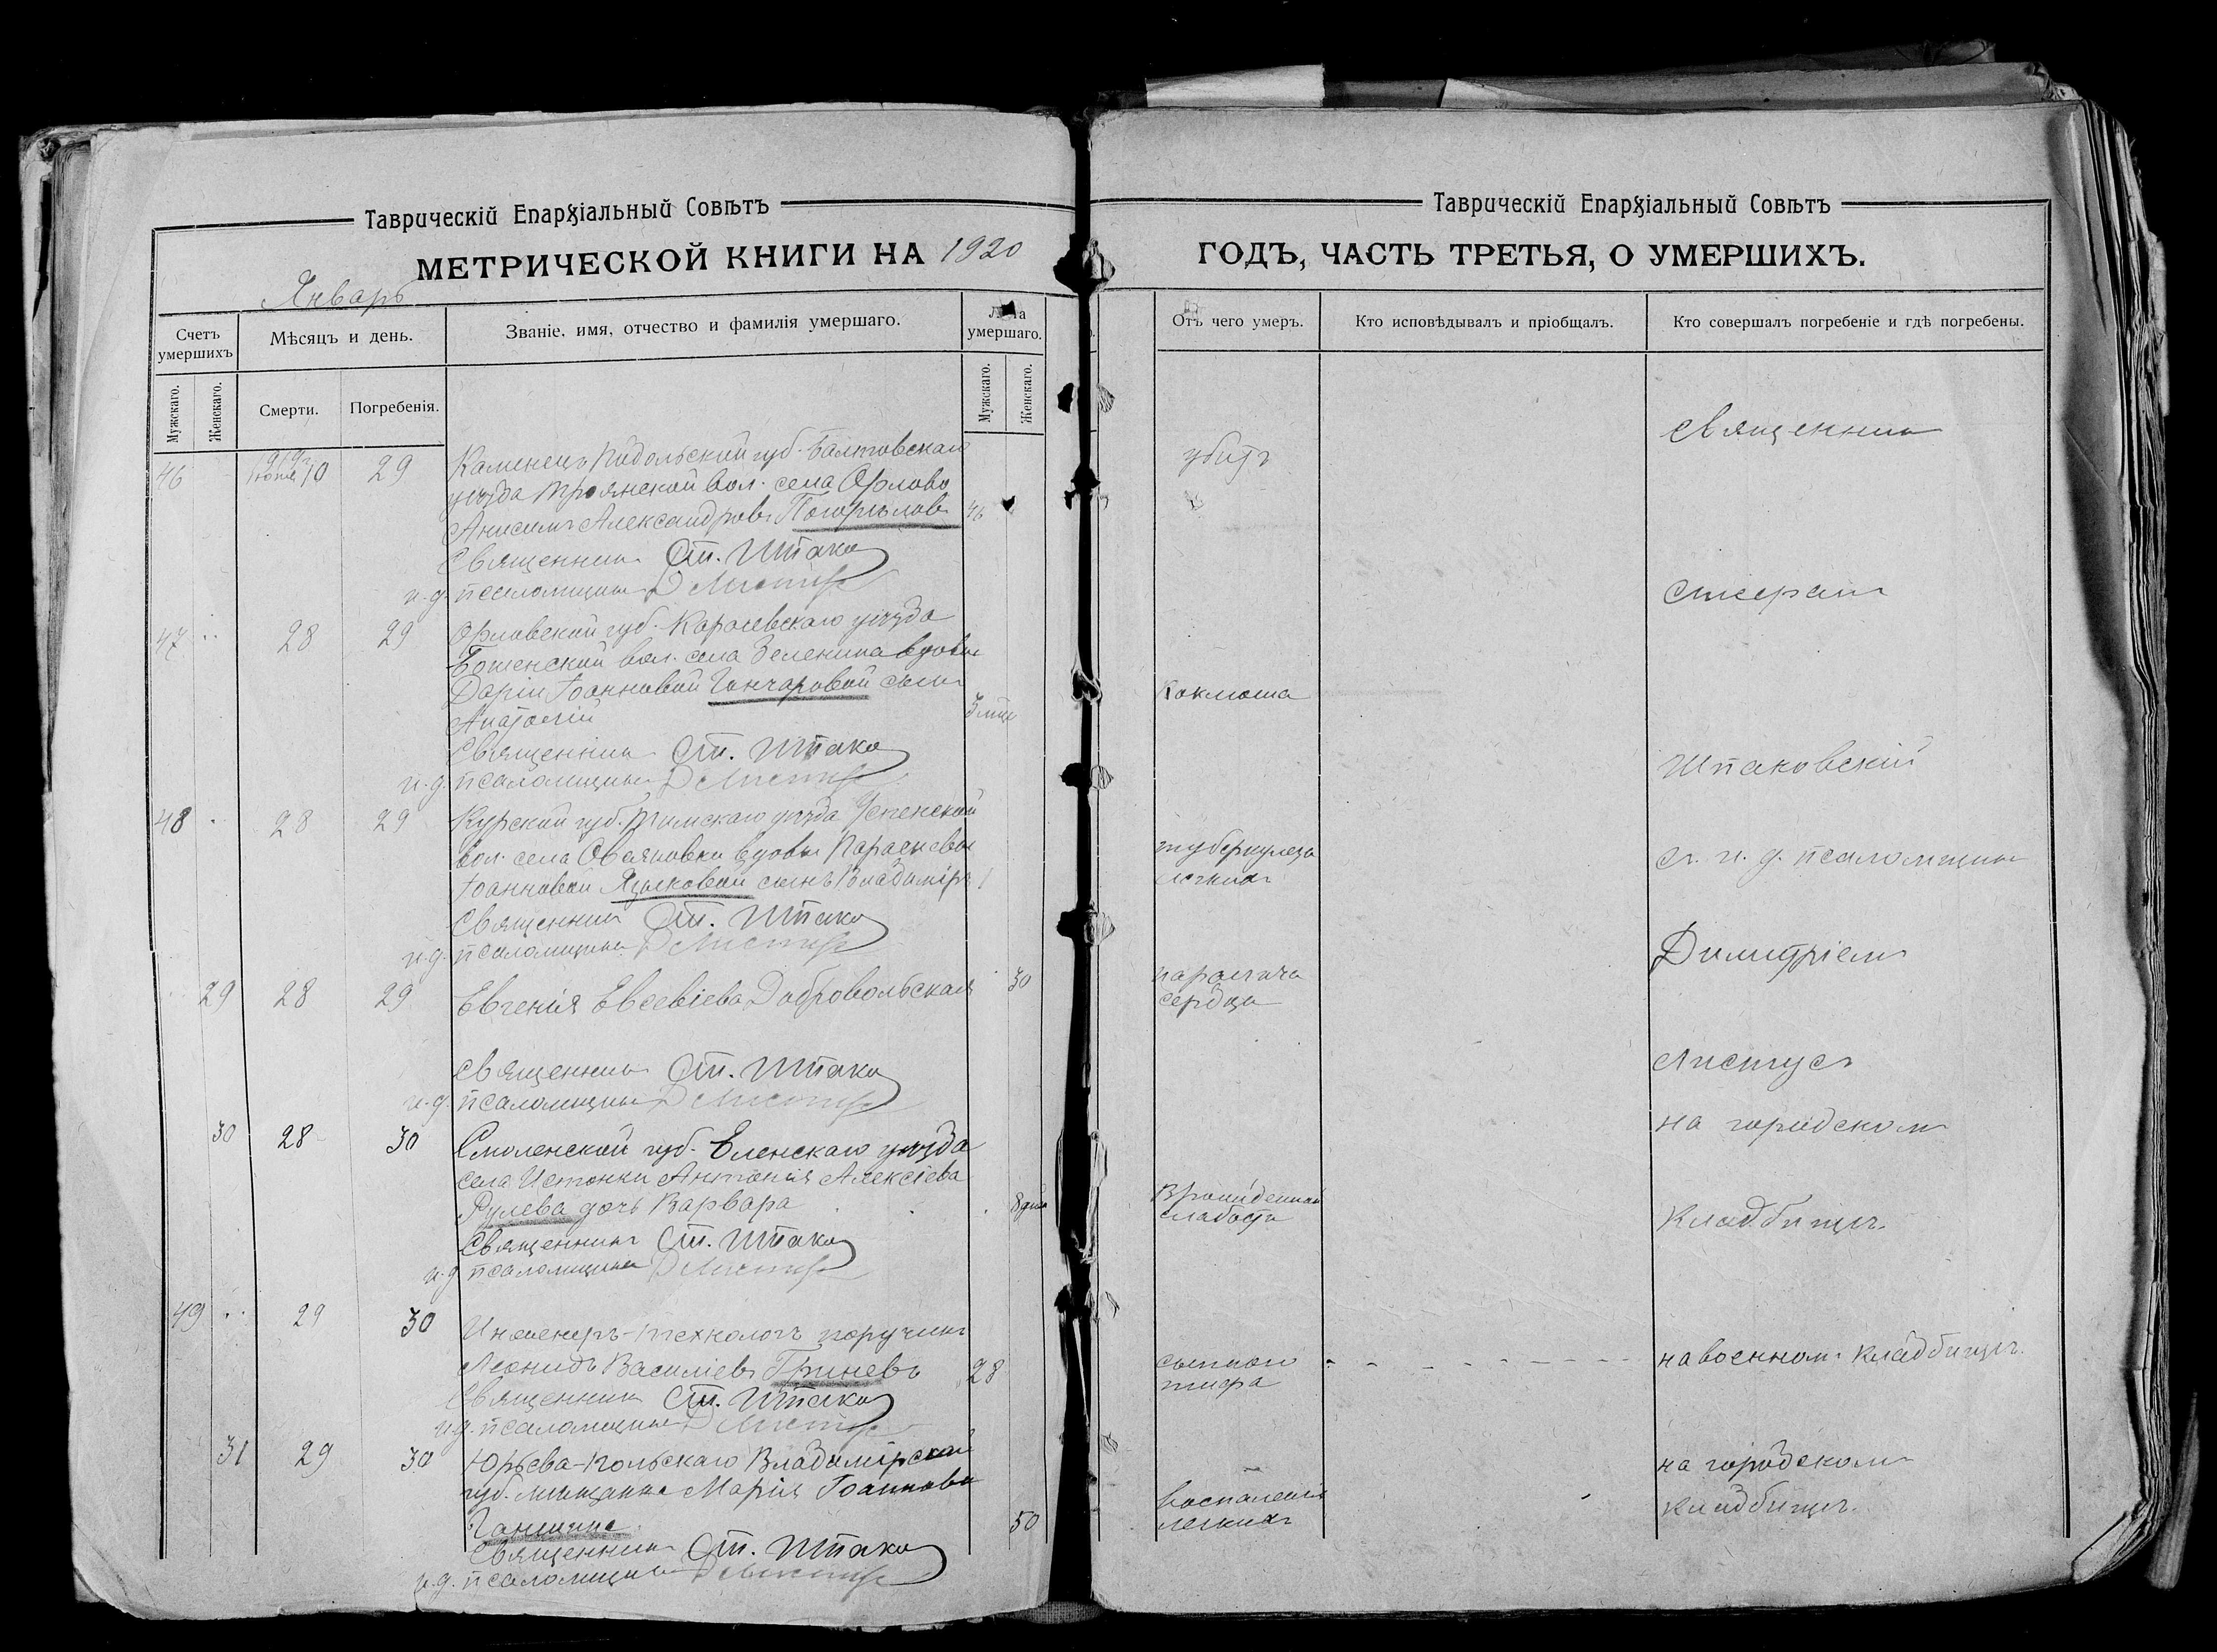 Таврическій Епархіальный Совѣтъ
МЕТРИЧЕСКОЙ КНИГИ НА 1920
Январь
Счетъ умершихъ
Мѣсяцъ и день.
Званіе, имя, отчество и фамилія умершаго.
Лѣта умершаго.
Мужскаго.
Женскаго.
Смерти.
Погребенія.
Мужскаго.
Женскаго.
46 10 29 Каменецъ Подольской губ. Балтовскаго
уѣзда Троянской вол. села Орлово
Анисимъ Александровъ Погорѣловъ 46
Священникъ Ст. Шпако
и.д. псаломщика Д Листус
47 28 29 Орловской губ. Карачевскаго уѣзда
вол. села Зеленина вдовы
Даріи Іоанновой Гончаровой сынъ
Анатолій 3 мѣс
Священникъ Ст. Шпако
и.д. псаломщика Д Листус
48 28 29 Курской губ. Тимскаго уѣзда Успенской
вол. села вдовы Параскевы
Іоанновой Языковой сынъ Владиміръ 1
Священникъ Ст. Шпако
и.д. псаломщика Д Листус
29 28 29 Евгенія Евсевіева Добровольская 30
Священникъ Ст. Шпако
и.д. псаломщика Д Листус
30 28 30 Смоленской губ. Еленскаго уѣзда
села Истонки Антонія Алексіева
Рулева дочь Варвара 8 дней
Священникъ Ст. Шпако
и.д. псаломщика Д Листус
49 29 30 Инженеръ-технологъ поручикъ
Леонидъ Василіевъ Гриневъ 28
Священникъ Ст. Шпако
и.д. псаломщика Д Листус
31 29 30 Юрьева-польскаго Владимірской
губ. мѣщанка Марія Іоаннова
50
Священникъ Ст. Шпако
и.д. псаломщика Д Листус
Таврическій Епархіальный Совѣтъ
ГОДЪ, ЧАСТЬ ТРЕТЬЯ, О УМЕРШИХЪ.
Отъ чего умеръ.
Кто исповѣдывалъ и пріобщалъ.
Кто совершалъ погребеніе и гдѣ погребены.
убитъ
Священникъ
Стефанъ
Коклюша
Шпаковскій
туберкулеза
легкихъ
съ и. д. псаломщика
Димитріемъ
паралича
сердца
Листусъ
на городскомъ
Врожденной
слабости
кладбищѣ.
сыпного
тифа
на военномъ кладбищѣ.
воспаленія
легкихъ
на городскомъ
кладбищѣ.